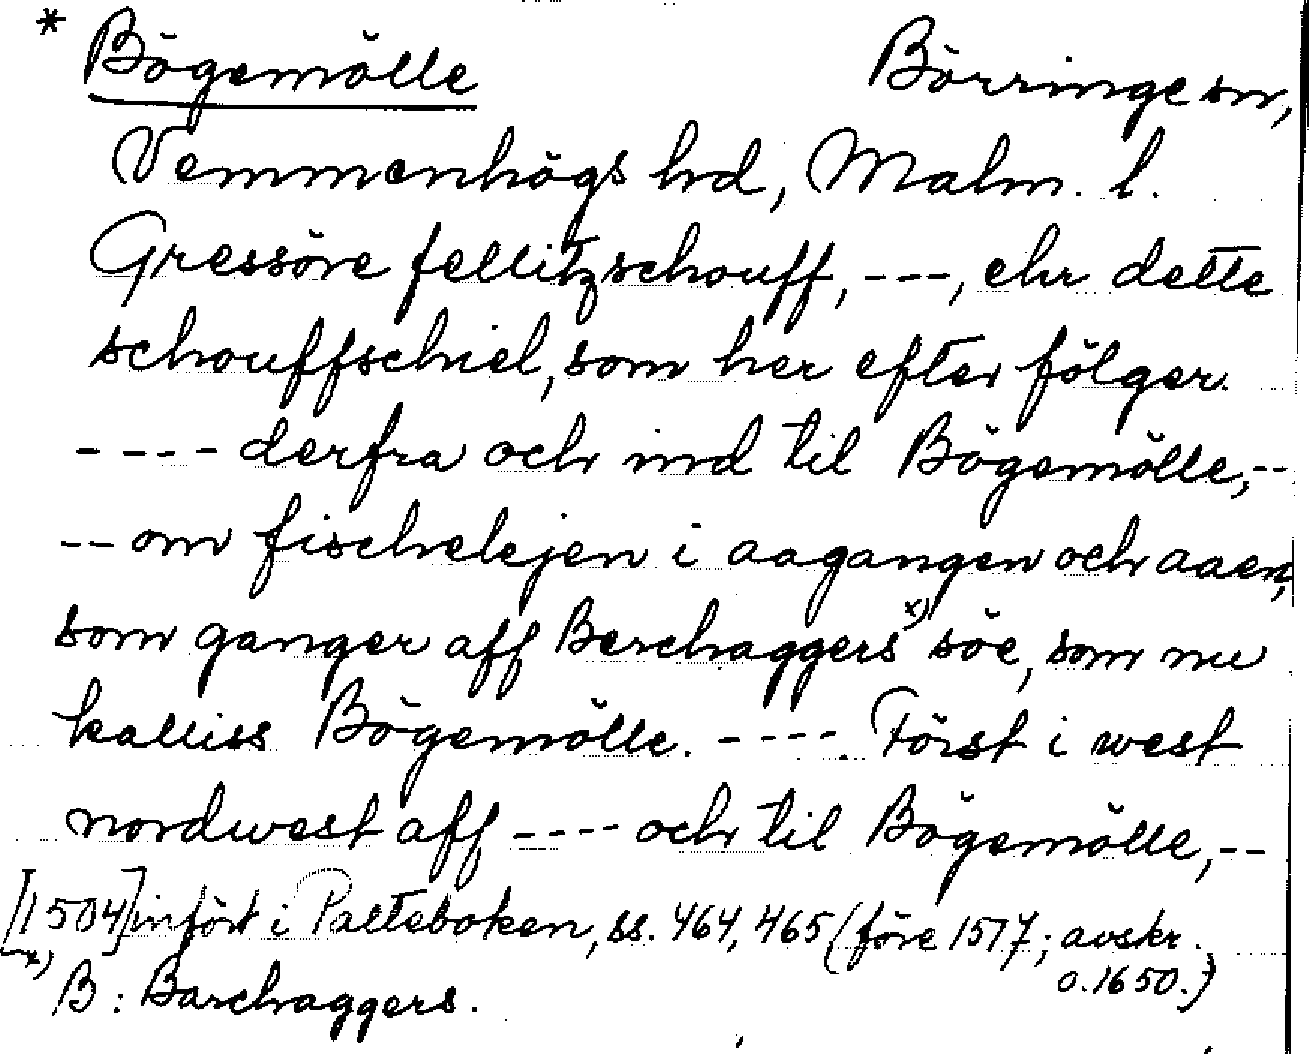 * Bögemölle Börringe sn,
Vemmenhögs hd, Malm. l.
Gressöre fellitzschouff, ---, ehr dette
schouffschiel, som her efter fölger.
---- derfra och ind til Bögemölle, --
-- om fischelejen i aagangen och aaen,
som ganger aff Berchaggers x) söe, som nu
kalliss Bögemölle. ----. Först i west
nordwest aff ---- och til Bögemölle, --
[1504] infört i Palteboken, ss. 464, 465 (före 1517; avskr.
o. 1650.)
x) B: Barchaggers.